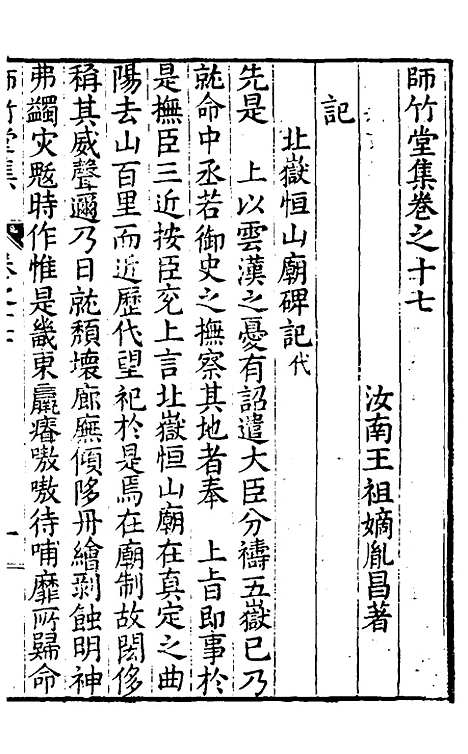 師竹堂集卷之十七
汝南王祖嫡胤昌著
記
北嶽恒山廟碑記代
先是　上以雲漢之憂有詔遣大臣分禱五嶽已乃
就命中丞若御史之撫察其地者奉　上旨即事於
是撫臣三近按臣兖上言北嶽恒山廟在真定之曲
陽去山百里而近歷代望祀於是焉在廟制故閎侈
稱其威聲邇乃日就頹壞廊廡傾陊丹繪剥蝕明神
弗蠲灾魃時作惟是畿東羸瘠嗷嗷待哺靡所歸命